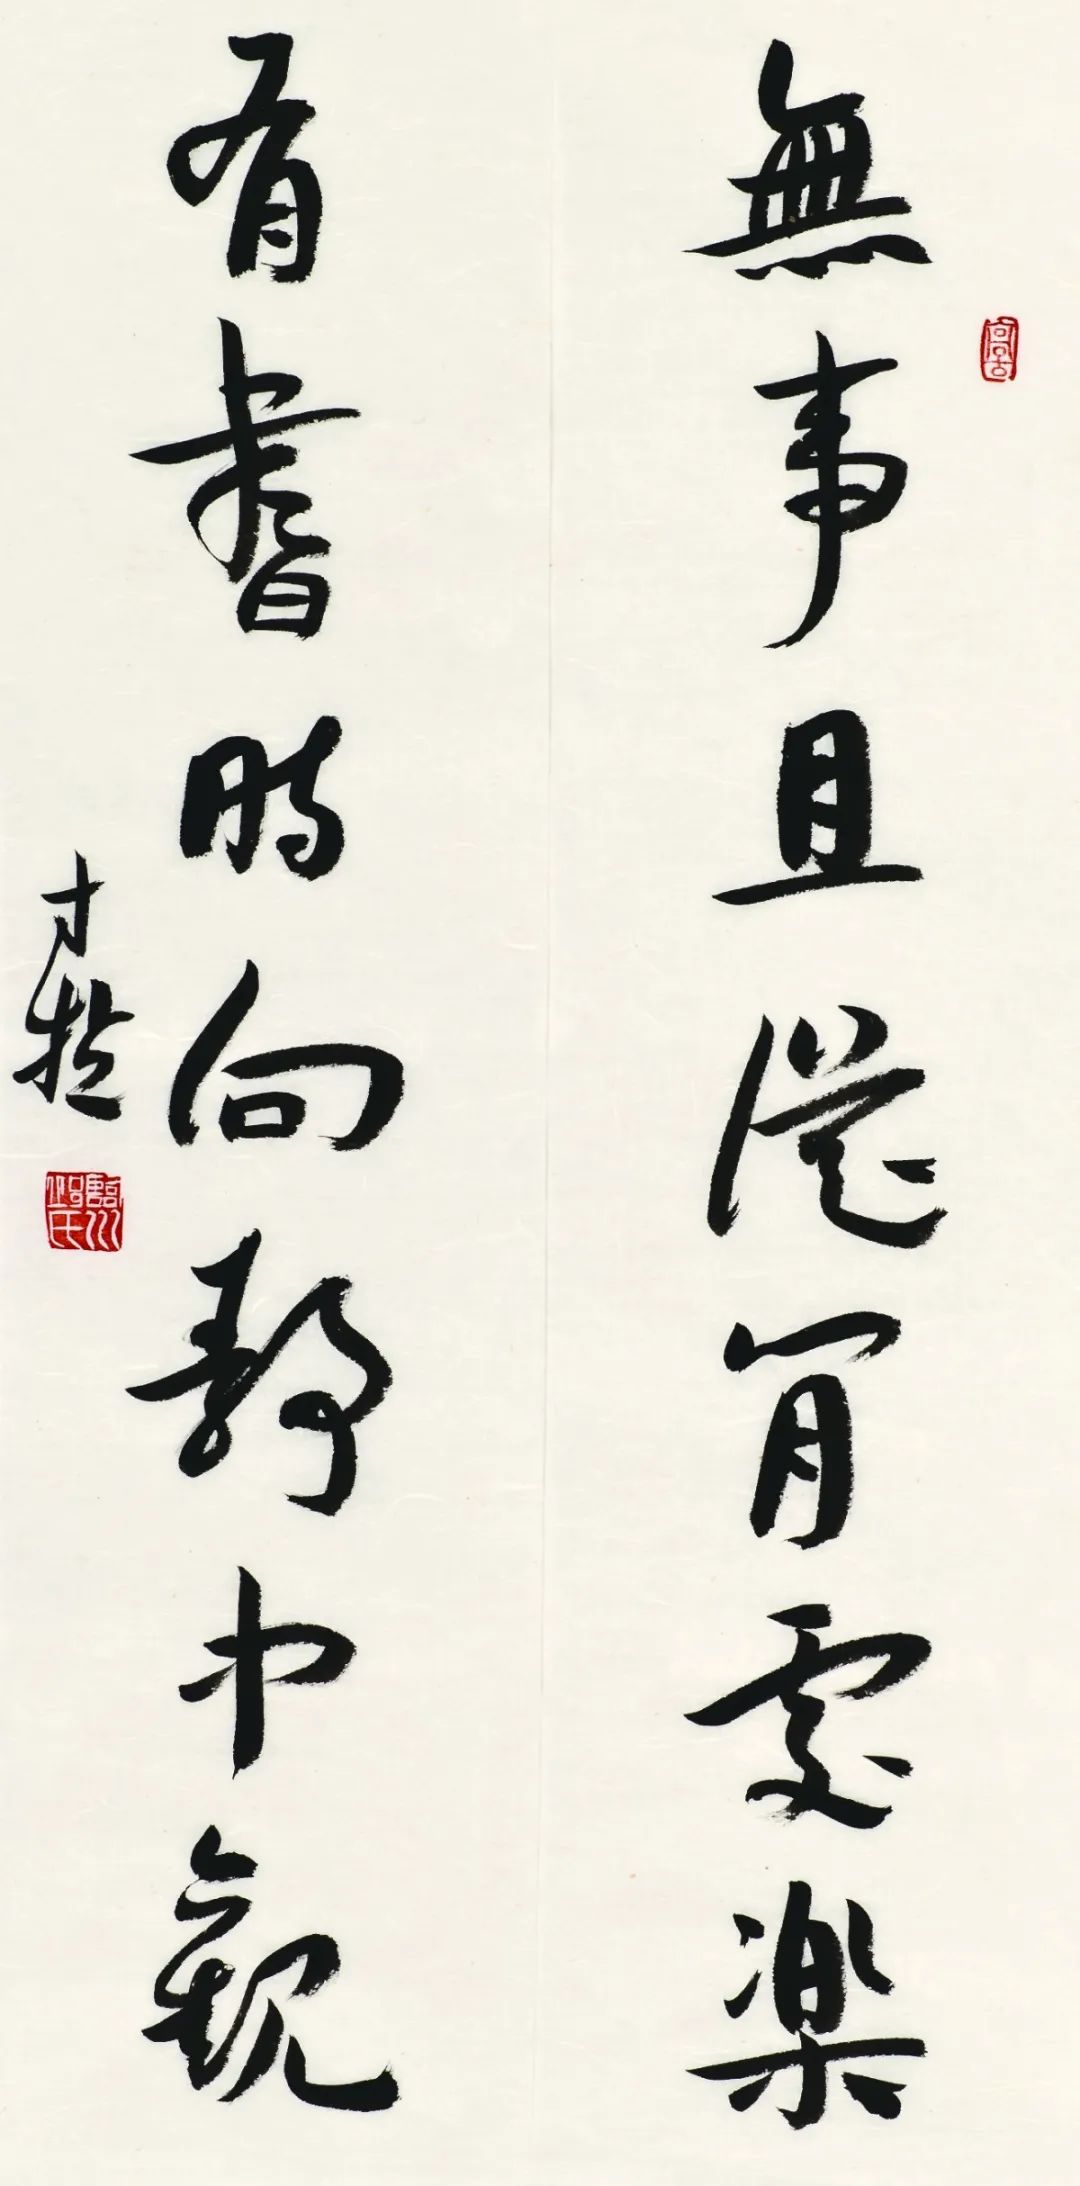 無事且從閒處樂
有書時向靜中觀